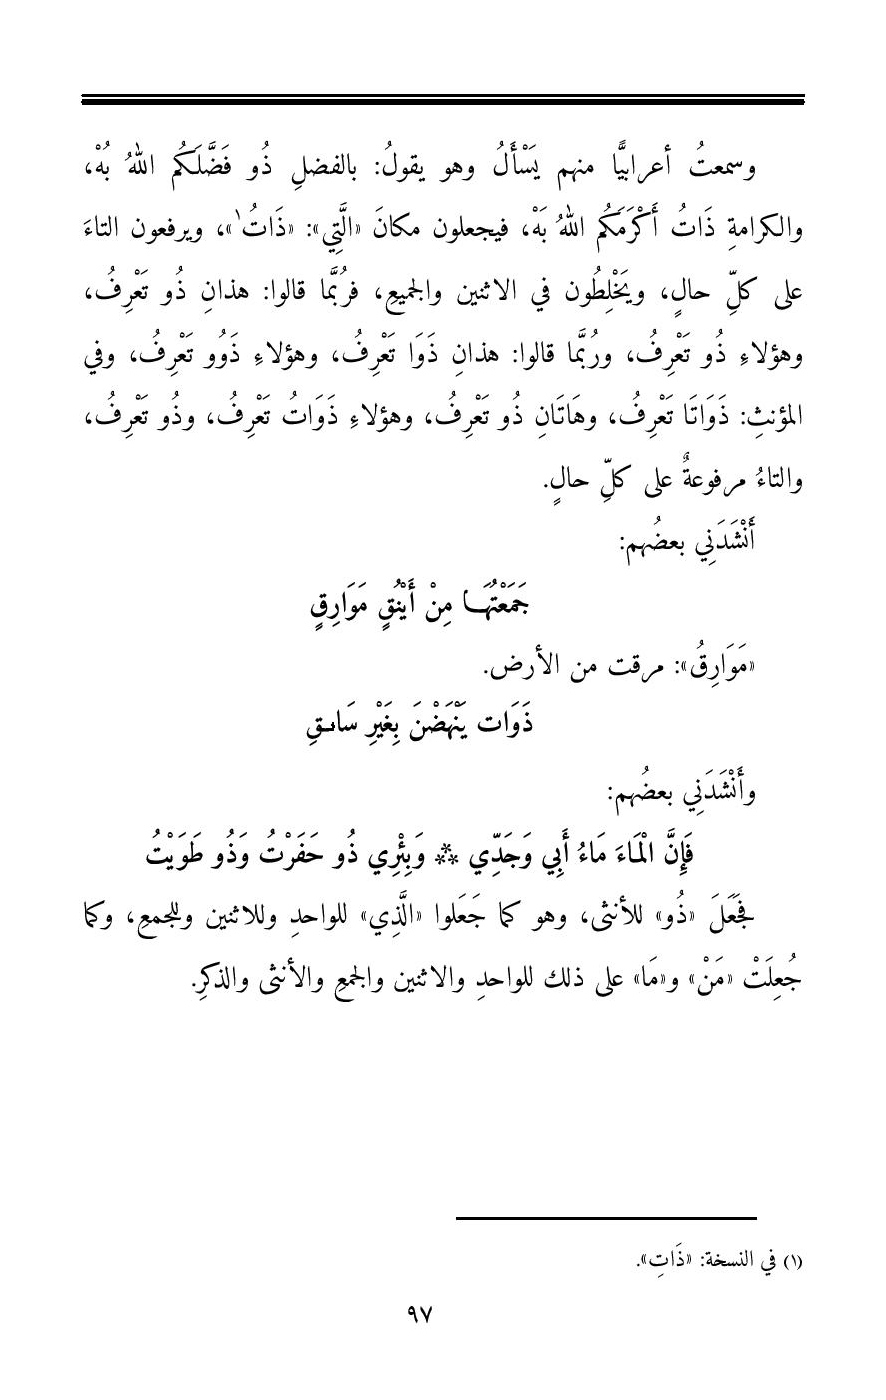 وسمعتُ أعرابيًّا منهم يَسْأَلُ وهو يقولُ: بالفضلِ ذُو فَضَّلَكُم اللهُ بُهْ،
والكرامةِ ذَاتُ أَكْرَمَكُم اللهُ بَهْ، فيجعلون مكانَ «الَّتِي»: «ذَاتُ١»، ويرفعون التاءَ
على كلِّ حالٍ، ويَخْلِطُون في الاثنين والجميعِ، فرُبَّما قالوا: هذانِ ذُو تَعْرِفُ،
وهؤلاءِ ذُو تَعْرِفُ، ورُبَّما قالوا: هذانِ ذَوَا تَعْرِفُ، وهؤلاءِ ذَوُو تَعْرِفُ، وفي
المؤنثِ: ذَوَاتَا تَعْرِفُ، وهَاتَانِ ذُو تَعْرِفُ، وهؤلاءِ ذَوَاتُ تَعْرِفُ، وذُو تَعْرِفُ،
والتاءُ مرفوعةٌ على كلِّ حالٍ.
أَنْشَدَنِي بعضُهم:
جَمَعْتُهَـا مِنْ أَيْنُقٍ مَوَارِقٍ
«مَوَارِقُ»: مرقت من الأرض.
ذَوَات يَنْهَضْنَ بِغَيْرِ سَائـقِ
وأَنْشَدَنِي بعضُهم:
فَإِنَّ الْمَاءَ مَاءُ أَبِي وَجَدِّي ** وَبِئْرِي ذُو حَفَرْتُ وَذُو طَوَيْتُ
فجَعَلَ «ذُو» للأنثى، وهو كما جَعَلوا «الَّذِي» للواحدِ وللاثنين وللجمعِ، وكما
جُعِلَتْ «مَنْ» و«مَا» على ذلك للواحدِ والاثنين والجمعِ والأنثى والذكرِ.
(١) في النسخة: «ذَاتِ».
٩٧